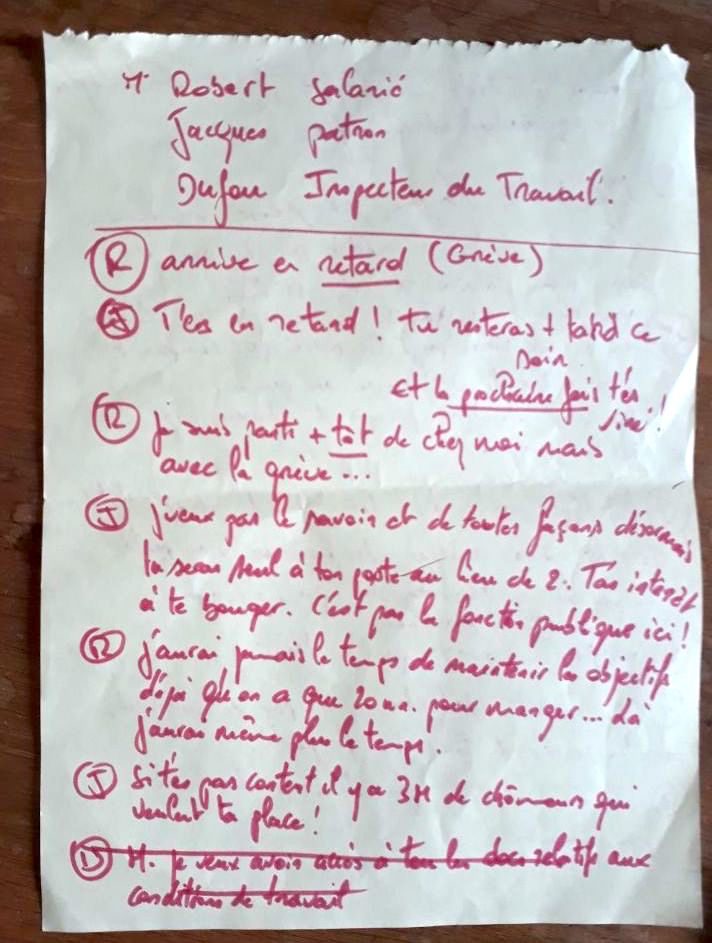 M. Robert salarié
Jacques patron
Dufou Inspecteur du Travail.
R arrive en retard (Grève)
J T'es en retard ! tu resteras + tard ce
soir
Et la prochaine fois t'es
viré !
R Je suis parti + tôt de chez moi mais
avec la grève...
J J'veux pas le savoir et de toutes façons désormais
tu seras seul à ton poste au lieu de 2. T'as intérêt
à te bouger. C'est pas la fonction publique ici !
R J'aurai jamais le temps de maintenir les objectifs
déjà qu'on a que 20 mn. pour manger... Là
j'aurai même plus le temps.
J Si t'es pas content il y a 3M de chômeurs qui
veulent ta place !
D M. Je veux avoir accès à tous les docs relatifs aux
conditions de travail